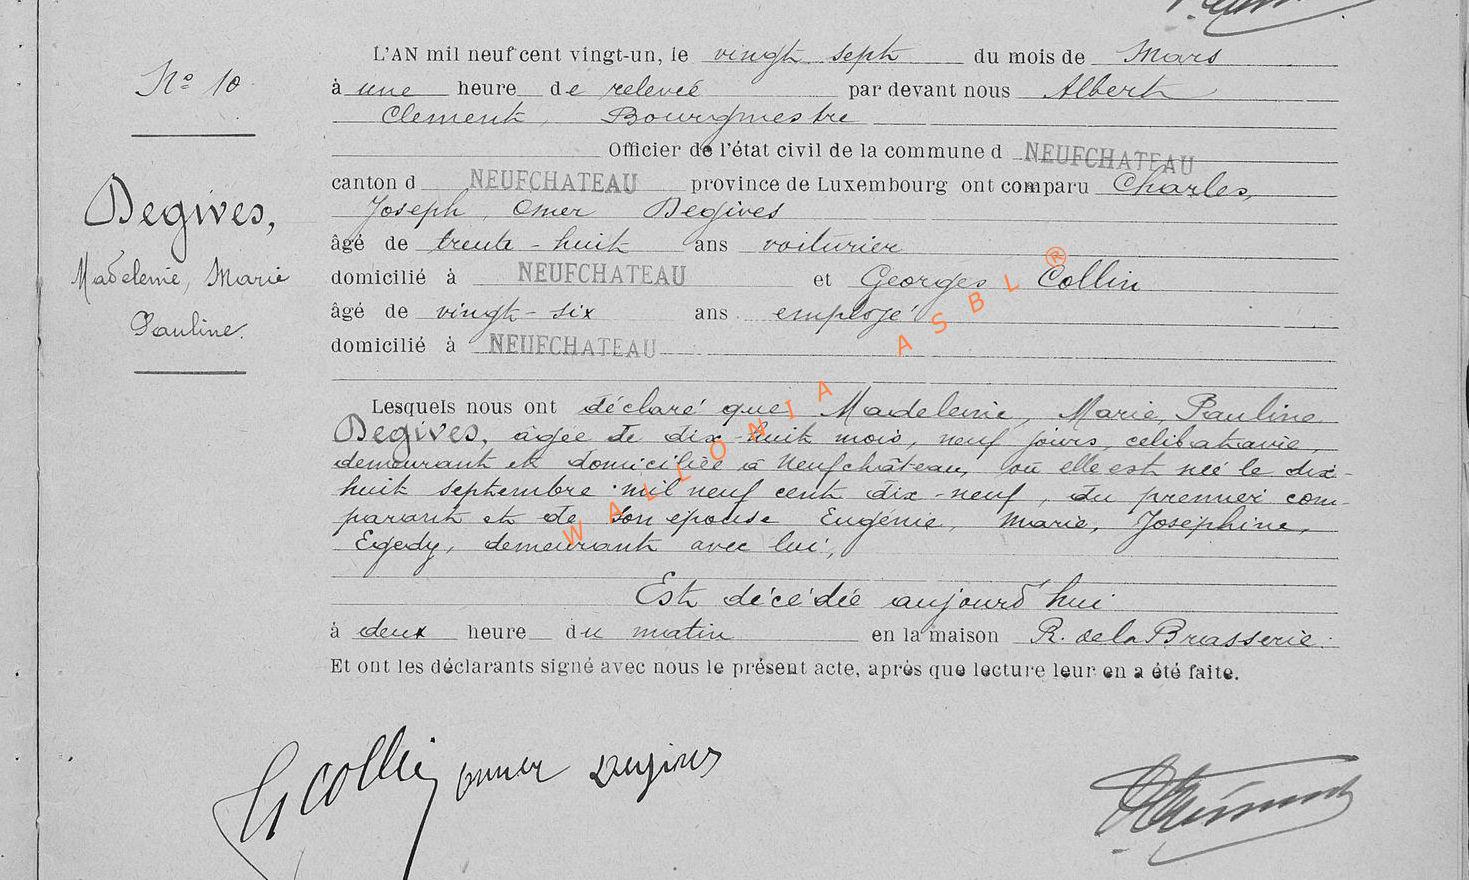 N° 10
Degives,
Madeleine, Marie
Pauline.
L'AN mil neuf cent vingt-un, le vingt sept du mois de Mars
à une heure de relevée par devant nous Albert
Clement, Bourgmestre
Officier de l'état civil de la commune d NEUFCHATEAU
canton d NEUFCHATEAU province de Luxembourg ont comparu Charles,
Joseph, Omer Degives
âgé de trente-huit ans voiturier
domicilié à NEUFCHATEAU et Georges Collin
âgé de vingt-six ans employé
domicilié à NEUFCHATEAU
Lesquels nous ont déclaré que Madeleine, Marie, Pauline
Degives, âgée de dix-huit mois, neuf jours, célibataire,
demeurant et domiciliée à Neufchâteau, où elle est née le dix-
huit septembre mil neuf cent dix-neuf, du premier com-
parant et de son épouse Eugénie, Marie, Joséphine,
Egedy, demeurant avec lui,
Est décédée aujourd'hui
à deux heure du matin en la maison R. de la Brasserie.
Et ont les déclarants signé avec nous le présent acte, après que lecture leur en a été faite.
G Collin Omer Degives
WALLONIA ASBL ®